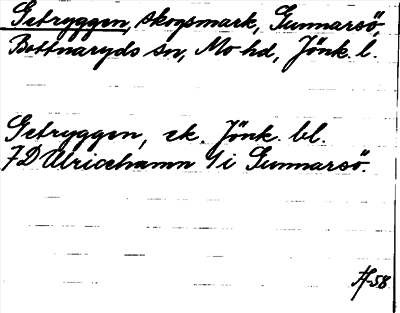 Getryggen, skogsmark, Gunnarsö,
Bottnaryds sn, Mo hd, Jönk. l.
Getryggen, ek. Jönk. bl.
7D Ulricehamn 1i Gunnarsö.
-58